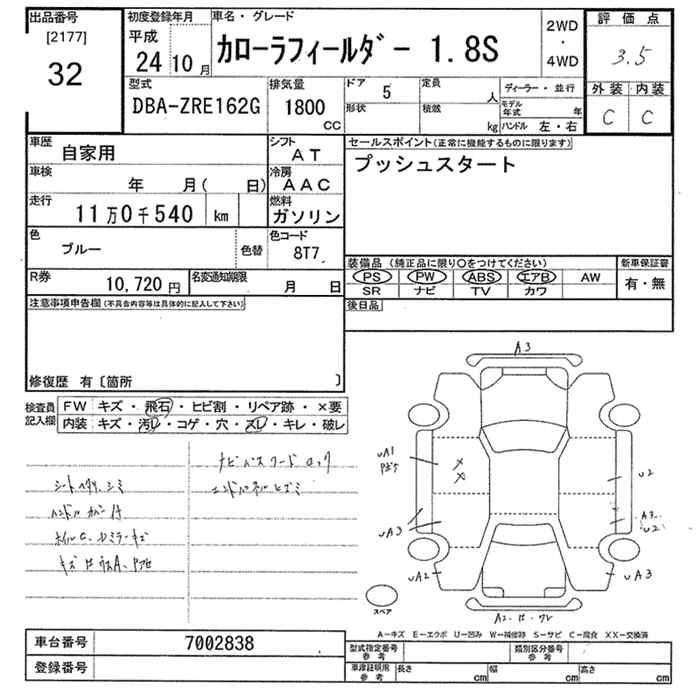 出品番号
[2177]
32
初度登録年月
平成
24年10月
車名・グレード
カローラフィールダー 1.8S
2WD
・
4WD
評価点
3.5
外装 内装
C C
型式
DBA-ZRE162G
排気量
1800
cc
ドア 5
定員 人
形状
積載 kg
ディーラー・並行
モデル年式 年
ハンドル 左・右
車歴
自家用
シフト
AT
セールスポイント(正常に機能するものに限ります)
プッシュスタート
車検
年 月( 日)
冷房
AAC
走行
11万0千540 km
燃料
ガソリン
色
ブルー
色替
色コード
8T7
装備品 (純正品に限り○をつけてください)
PS PW ABS エアB AW
SR ナビ TV カワ
新車保証書
有・無
R券
10,720円
名変通知期限
月 日
後日品
注意事項申告欄(不具合内容等は具体的に記入して下さい)
修復歴 有〔箇所 〕
検査員
記入欄
FW キズ・飛石・ヒビ割・リペア跡・×要
内装 キズ・汚レ・コゲ・穴・スレ・キレ・破レ
ナビパスワードロック
シートヘタリ、シミ
エンドパネルヒズミ
ハンドルカバー付
A3
uA1
u2
uA3
uA2
uA3
スペア
A-キズ E-エクボ U-凹み W-補修跡 S-サビ C-腐食 XX-交換済
車台番号 7002838
登録番号
型式指定番号
参考
類別区分番号
参考
車庫証明用
参考
長さ cm
幅 cm
高さ cm